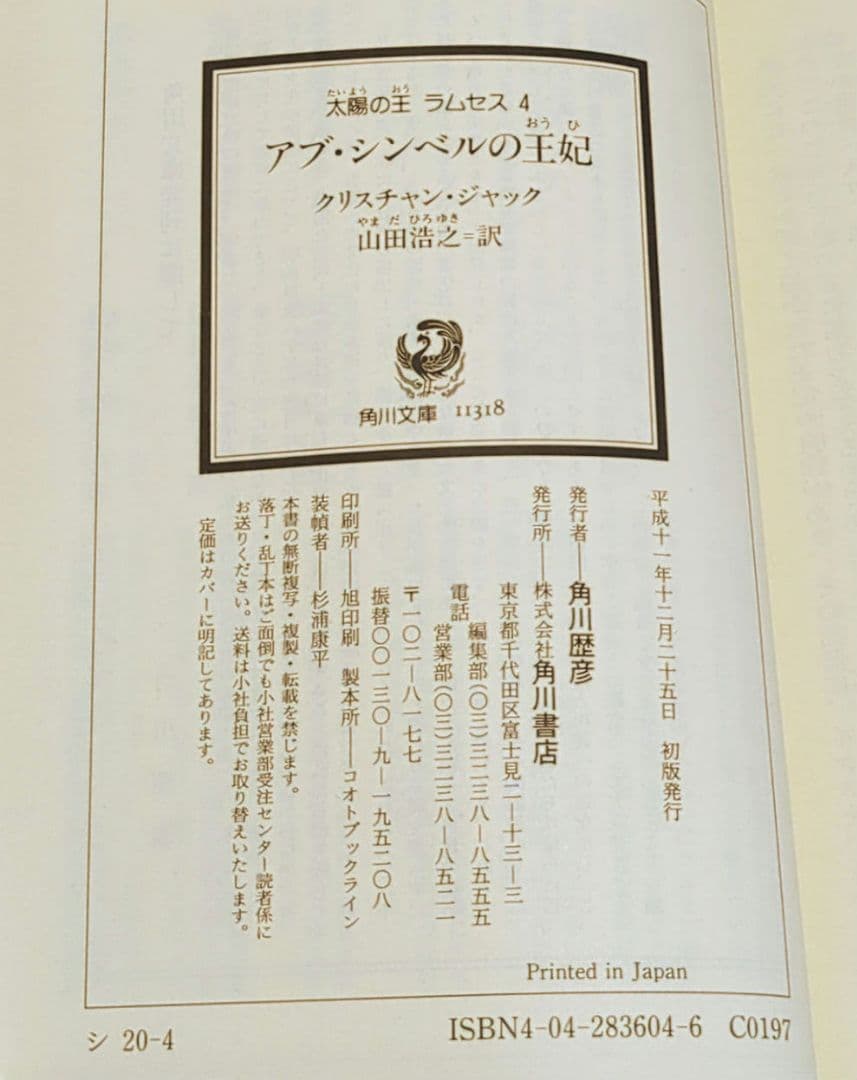 たいよう おう
太陽の王 ラムセス 4
おう ひ
アブ・シンベルの王妃
クリスチャン・ジャック
やま だ ひろ ゆき
山田浩之=訳
角川文庫 11318
平成十一年十二月二十五日 初版発行
発行者――角川歴彦
発行所――株式会社角川書店
東京都千代田区富士見二―十三―三
電話 編集部(〇三)三二三八―八五五五
営業部(〇三)三二三八―八五二一
〒一〇二―八一七七
振替〇〇一三〇―九―一九五二〇八
印刷所――旭印刷 製本所――コオトブックライン
装幀者――杉浦康平
本書の無断複写・複製・転載を禁じます。
落丁・乱丁本はご面倒でも小社営業部受注センター読者係に
お送りください。送料は小社負担でお取り替えいたします。
定価はカバーに明記してあります。
Printed in Japan
シ 20-4
ISBN4-04-283604-6 C0197